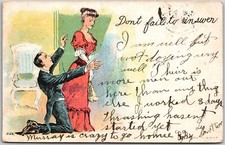 Don't fail to answer
I am well but
not doing any
well Thair is
more men out
here than any thing
else I worked 2 days
thrashing hasent
started yet
Murray is crazy to go home